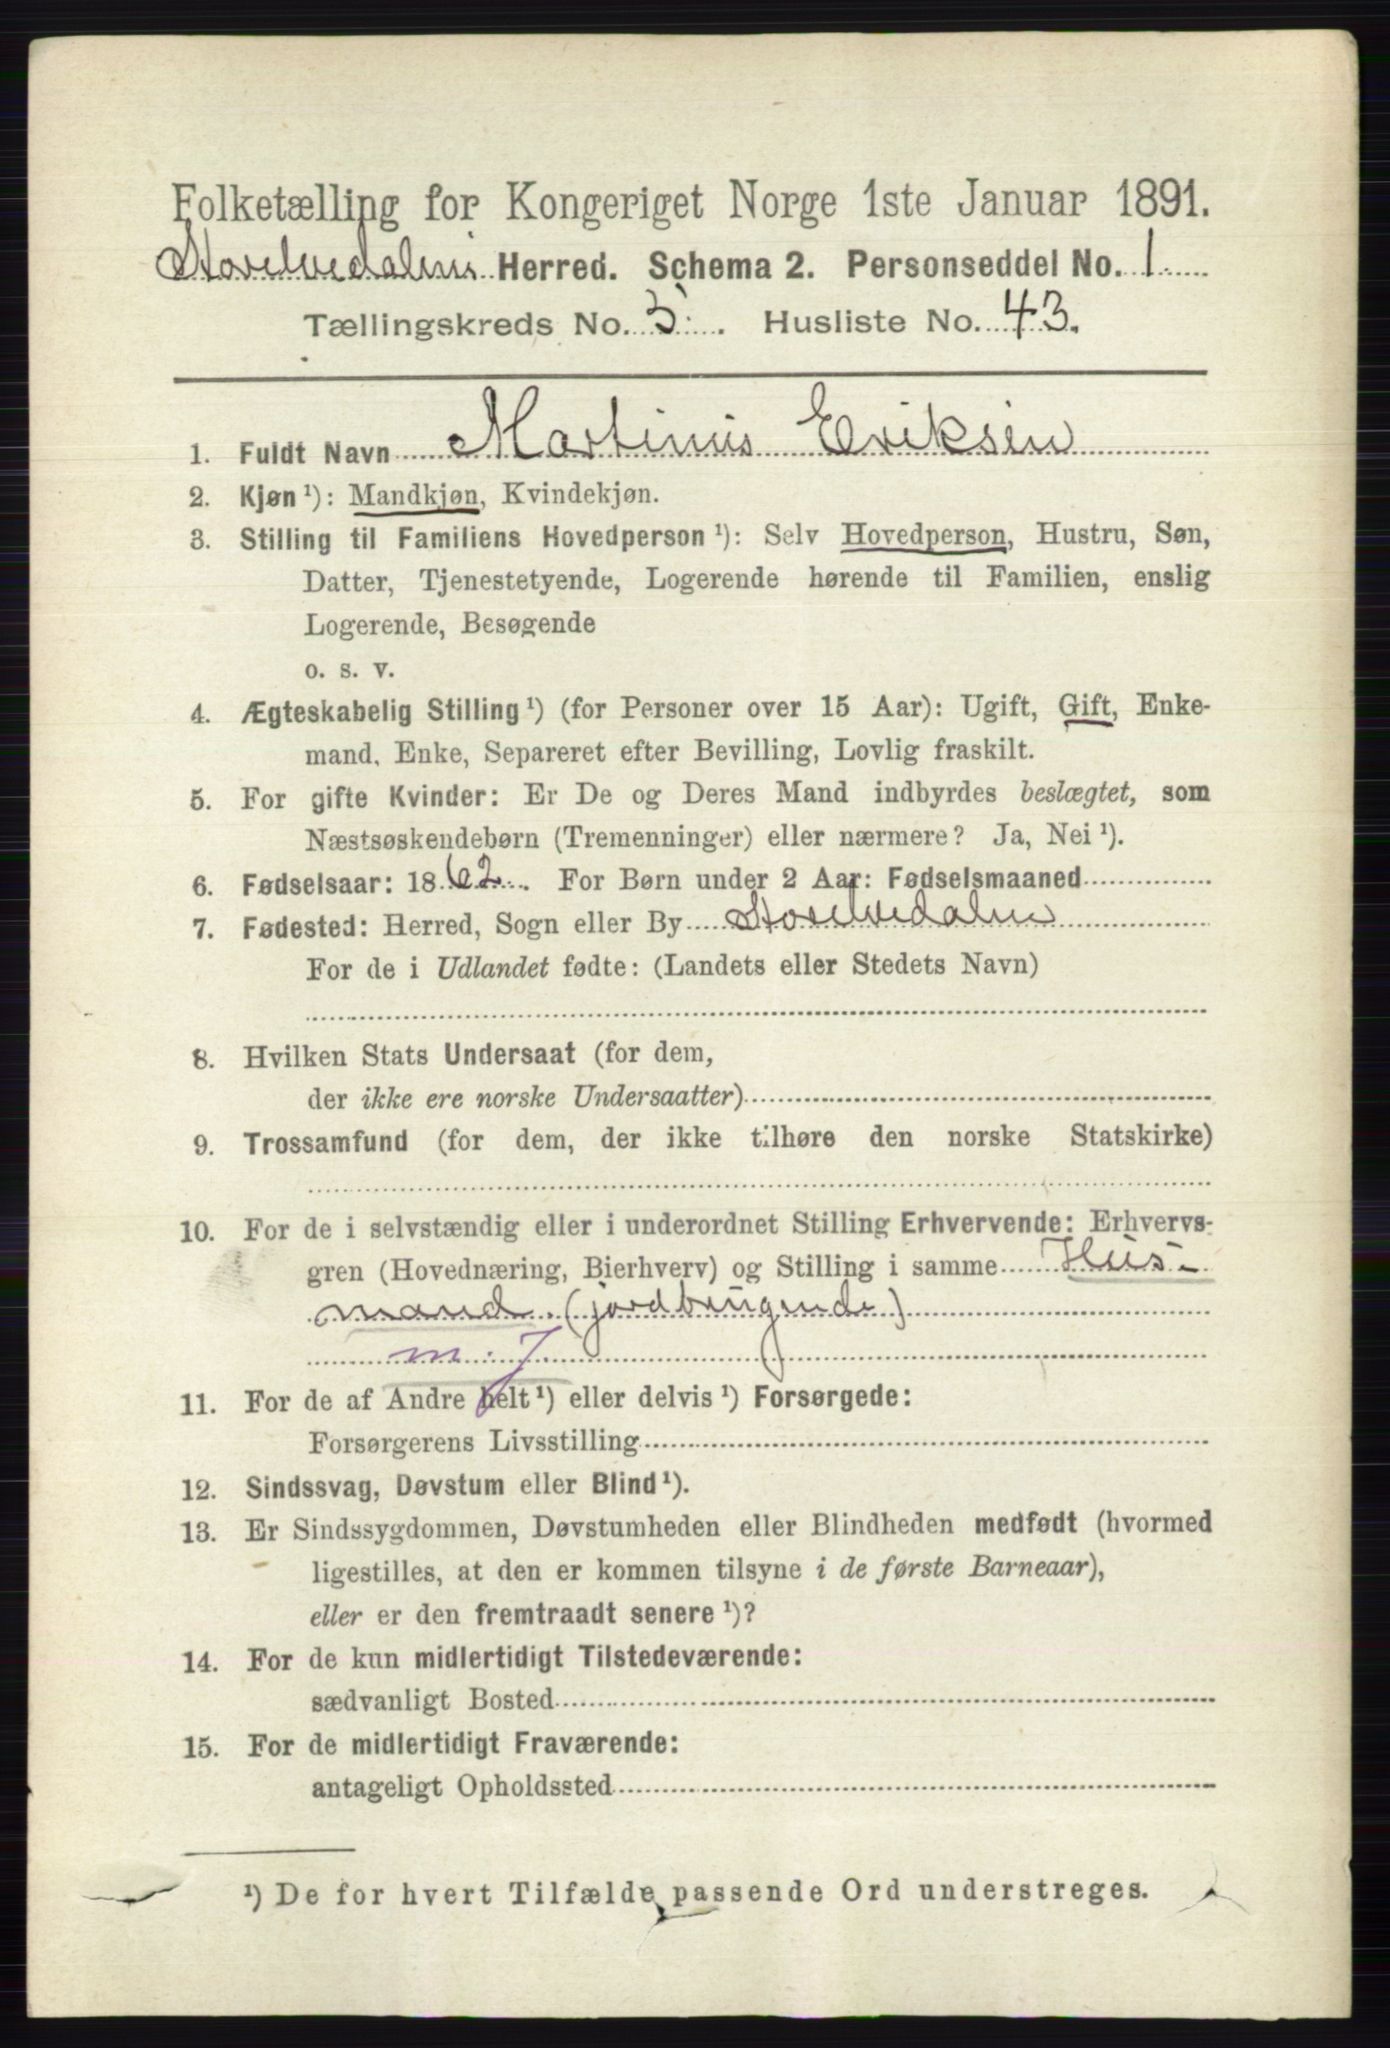 Folketælling for Kongeriget Norge 1ste Januar 1891.
Storelvedalens Herred. Schema 2. Personseddel No. 1
Tællingskreds No. 5. Husliste No. 43.
1. Fuldt Navn Martinus Eriksen
2. Kjøn ¹): Mandkjøn, Kvindekjøn.
3. Stilling til Familiens Hovedperson ¹): Selv Hovedperson, Hustru, Søn,
Datter, Tjenestetyende, Logerende hørende til Familien, enslig
Logerende, Besøgende
o. s. v.
4. Ægteskabelig Stilling ¹) (for Personer over 15 Aar): Ugift, Gift, Enke-
mand, Enke, Separeret efter Bevilling, Lovlig fraskilt.
5. For gifte Kvinder: Er De og Deres Mand indbyrdes beslægtet, som
Næstsøskendebørn (Tremenninger) eller nærmere? Ja, Nei ¹).
6. Fødselsaar: 1862. For Børn under 2 Aar: Fødselsmaaned
7. Fødested: Herred, Sogn eller By Storelvedalen
For de i Udlandet fødte: (Landets eller Stedets Navn)
8. Hvilken Stats Undersaat (for dem,
der ikke ere norske Undersaatter)
9. Trossamfund (for dem, der ikke tilhøre den norske Statskirke)
10. For de i selvstændig eller i underordnet Stilling Erhvervende: Erhvervs-
gren (Hovednæring, Bierhverv) og Stilling i samme Hus-
mand. (jordbrugende)
m. J.
11. For de af Andre helt ¹) eller delvis ¹) Forsørgede:
Forsørgerens Livsstilling
12. Sindssvag, Døvstum eller Blind ¹).
13. Er Sindssygdommen, Døvstumheden eller Blindheden medfødt (hvormed
ligestilles, at den er kommen tilsyne i de første Barneaar),
eller er den fremtraadt senere ¹)?
14. For de kun midlertidigt Tilstedeværende:
sædvanligt Bosted
15. For de midlertidigt Fraværende:
antageligt Opholdssted
¹) De for hvert Tilfælde passende Ord understreges.